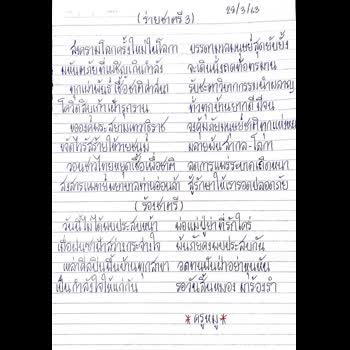 (ร่ายชาตรี 3)
29/3/63
สงครามโลกครั้งใหม่ในโลกา บรรดามวลมนุษย์สุดยับยั้ง
มหันตภัยที่เผชิญเกินกำลัง จะเดินนั่งกดท้อทรมาน
ทุกเผ่าพันธุ์ เชื้อชาติศาสนา รับชะตาวิบากกรรมนำเผาผลาญ
โควิดสิบเก้าเฝ้ารุกราน ทั่วทุกบ้านยากดีมีจน
ขอองค์พระสยามเทวาธิราช มนุษย์ชาติทุกแห่งหน
ขจัดไวรัสร้ายให้วายชนม์ มลายพ้นสากล-โลกา
วอนชาวไทยหยุดเชื้อเพื่อชาติ ลดการแพร่ระบาดเถิดหนา
สงสารแพทย์พยาบาลท่านอ่อนล้า สู้รักษาให้เรารอดปลอดภัย
(ร้องชาตรี)
วันนี้ไม่ได้พบประสบหน้า พ่อแม่ปู่ย่าที่รักใคร่
เมื่อฝนซาฟ้าสว่างกระจ่างใจ พ้นภัยคงพบประสบกัน
เหล่าศิลปินพื้นบ้านทุกสาขา วอนทนฝืนฝ่าอย่าหุนหัน
เป็นกำลังใจให้แก่กัน รอวันสิ้นหมอง มาร้องรำ
*ครูหมู*